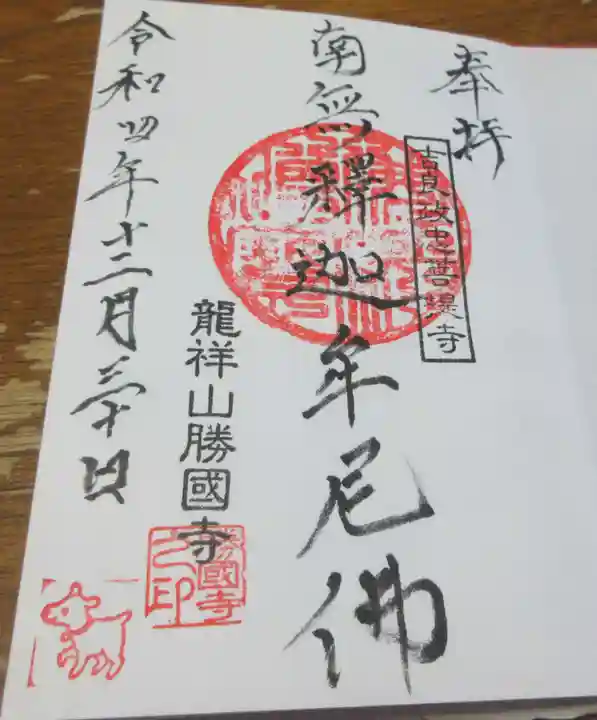 奉拝
吉良政忠菩提寺
南無釋迦牟尼佛
龍祥山勝國寺
勝國寺之印
令和四年十二月三十日